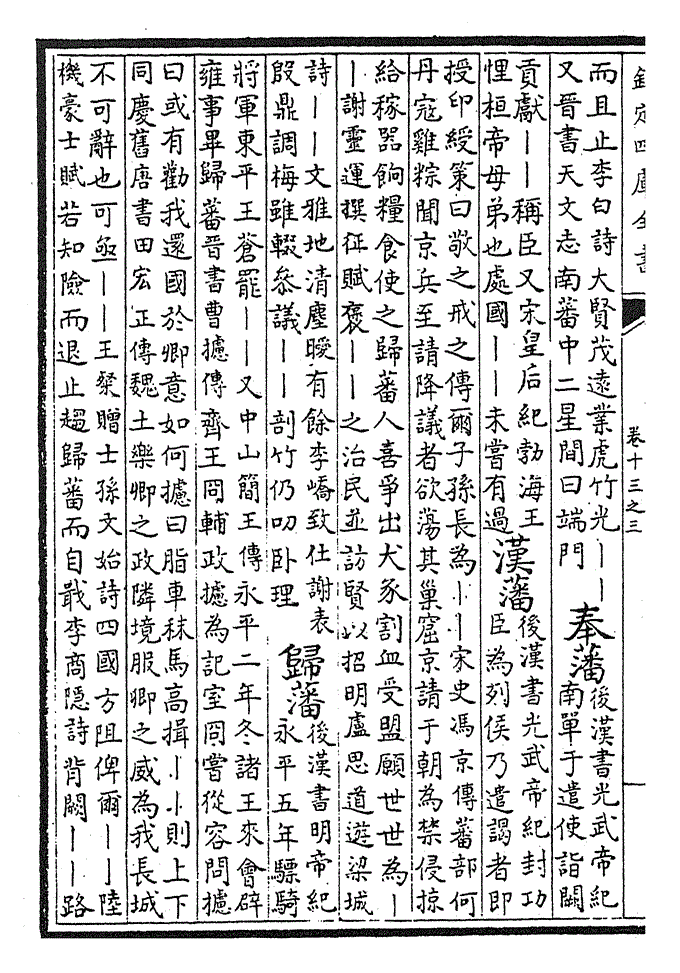 欽定四庫全書
卷十三之三
而且止李白詩大賢茂遠業虎竹光丨丨
又晉書天文志南蕃中二星間曰端門
奉藩
後漢書光武帝紀
南單于遣使詣闕
貢獻丨丨稱臣又宋皇后紀勃海王
悝桓帝母弟也處國丨丨未嘗有過
漢藩
後漢書光武帝紀封功
臣為列侯乃遣謁者即
授印綬策曰敬之戒之傳爾子孫長為丨丨宋史馮京傳蕃部何
丹寇雞粽聞京兵至請降議者欲蕩其巢窟京請于朝為禁侵掠
給稼器餉糧食使之歸蕃人喜爭出犬豕割血受盟願世世為丨
丨謝靈運撰征賦褒丨丨之治民並訪賢以招明盧思道遊梁城
詩丨丨文雅地清塵曖有餘李嶠致仕謝表
殷鼎調梅雖輟叅議丨丨剖竹仍叨卧理
歸藩
後漢書明帝紀
永平五年驃騎
將軍東平王蒼罷丨丨又中山簡王傳永平二年冬諸王來會辟
雍事畢歸蕃晉書曹攄傳齊王冏輔政攄為記室冏嘗從容問攄
曰或有勸我還國於卿意如何攄曰脂車秣馬高揖丨丨則上下
同慶舊唐書田宏正傳魏土樂卿之政隣境服卿之威為我長城
不可辭也可亟丨丨王粲贈士孫文始詩四國方阻俾爾丨丨陸
機豪士賦若知險而退止趨歸蕃而自戢李商隱詩背闕丨丨路